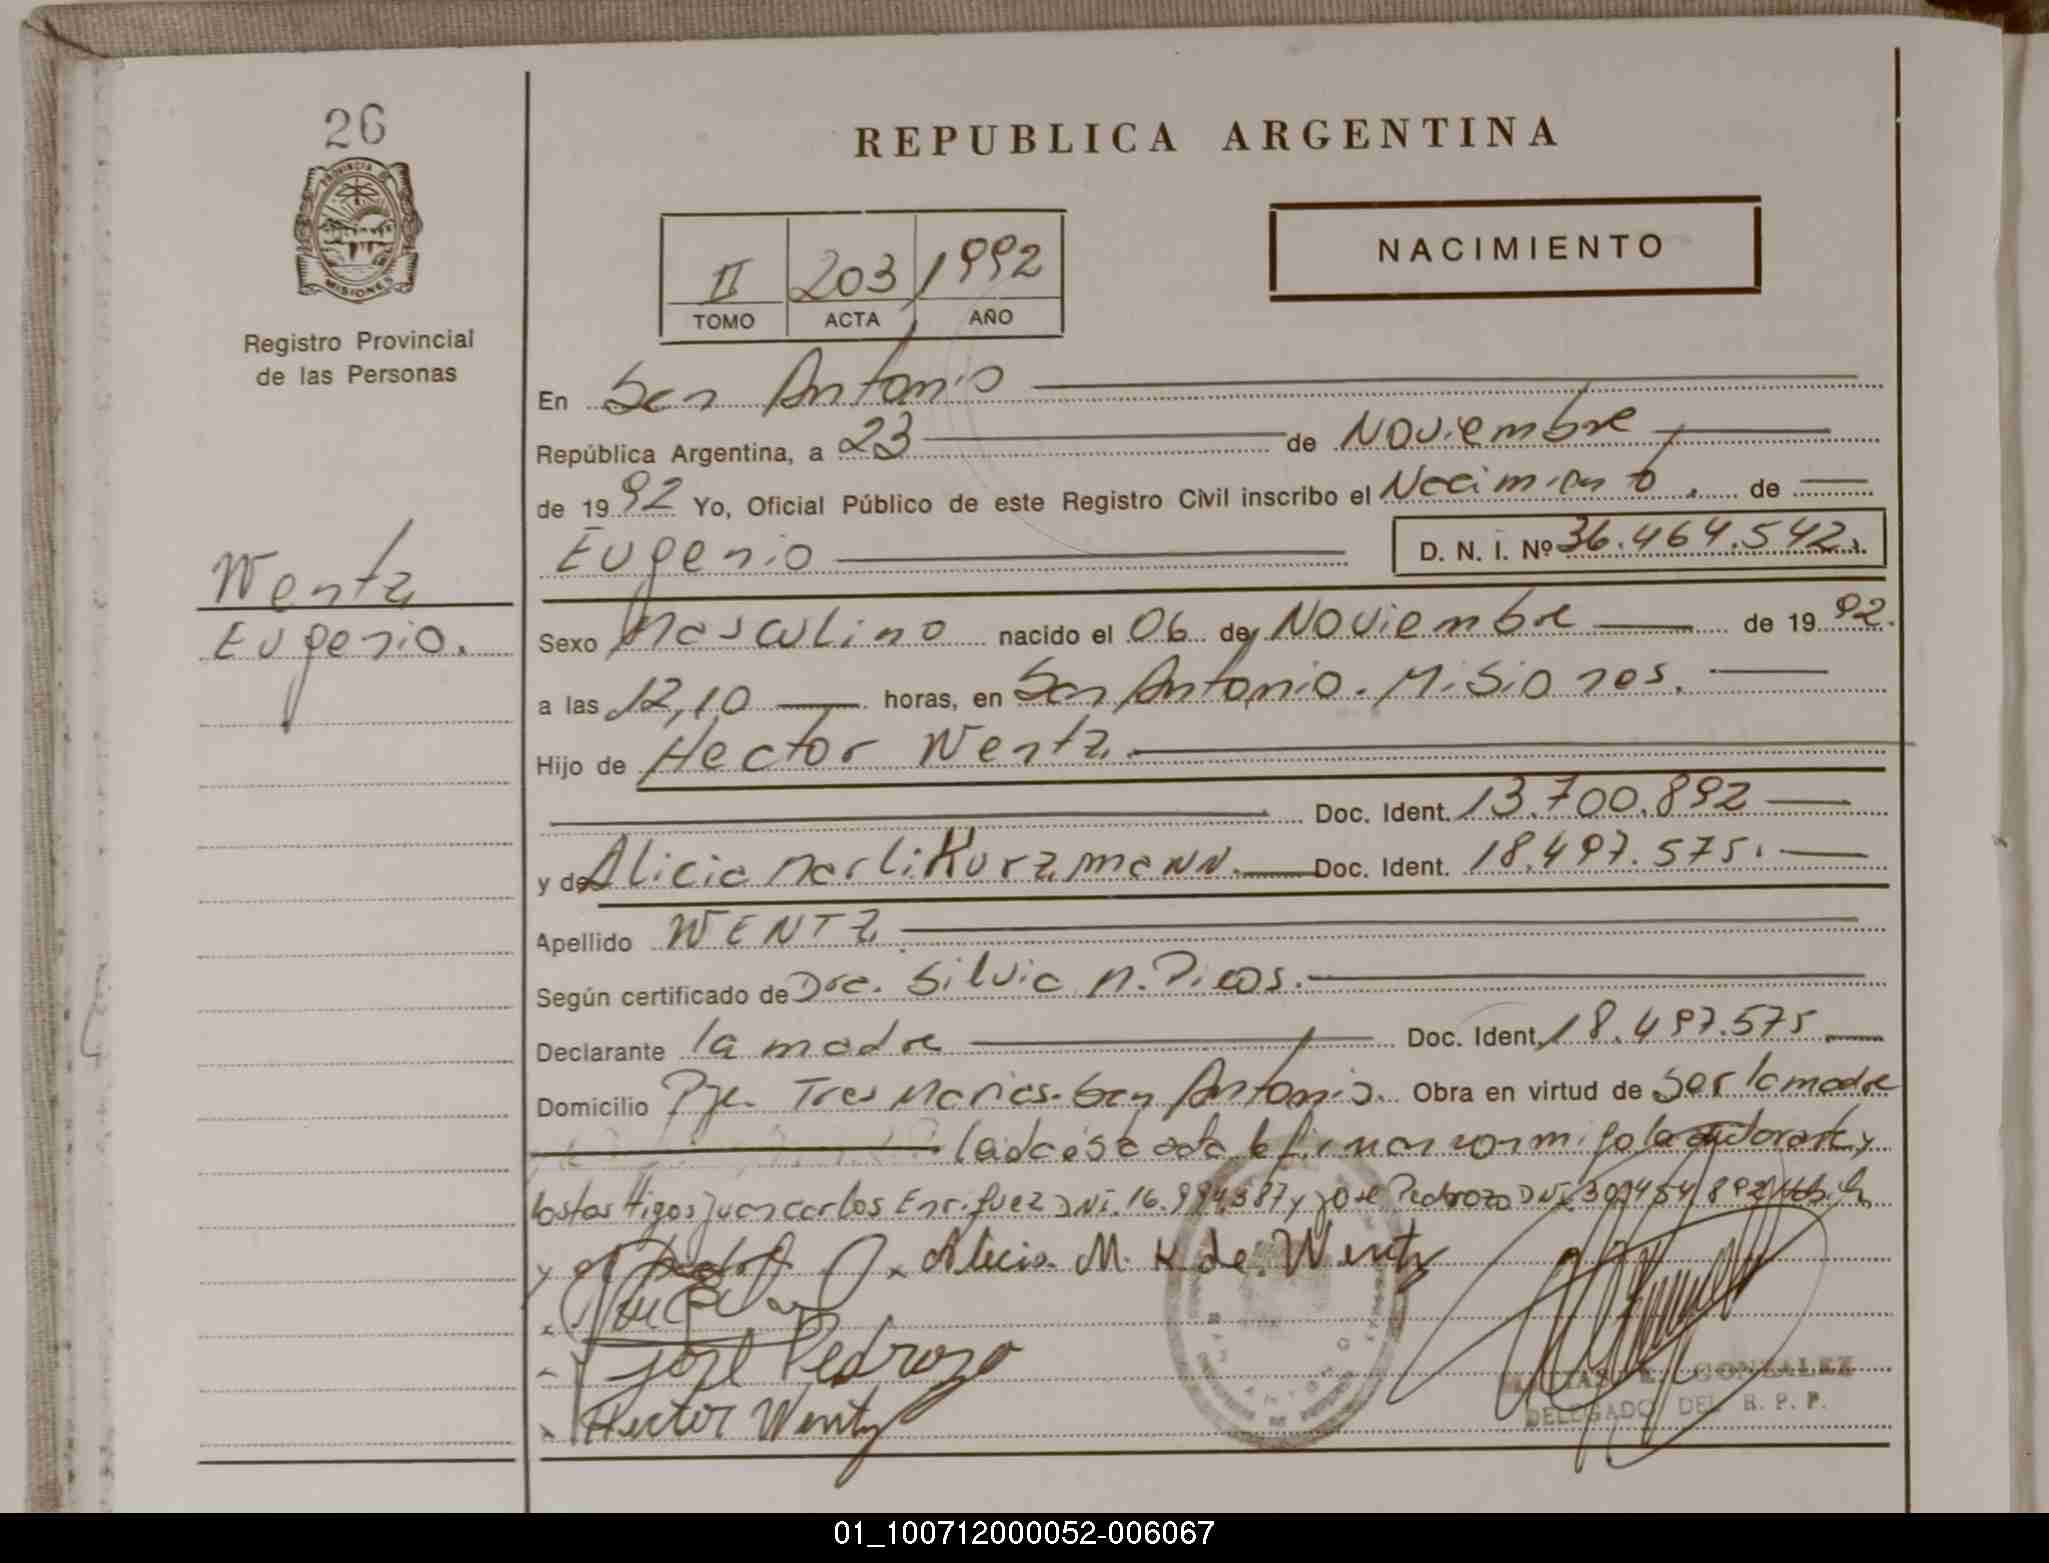 26
PROVINCIA DE
MISIONES
Registro Provincial
de las Personas
Wentz
Eugenio.
REPUBLICA ARGENTINA
II 203 1992
TOMO ACTA AÑO
NACIMIENTO
En San Antonio
República Argentina, a 23 de Noviembre
de 1992 Yo, Oficial Público de este Registro Civil inscribo el Nacimiento. de
Eugenio D. N. I. Nº 36.464.542.
Sexo Masculino nacido el 06 de Noviembre de 1992.
a las 12,10 horas, en San Antonio. Misiones.
Hijo de Hector Wentz.
Doc. Ident. 13.700.892
y de Alicia Marli Kurzmann. Doc. Ident. 18.497.575.
Apellido WENTZ
Según certificado de Dra. Silvia N. Picos.
Declarante la madre Doc. Ident. 18.497.575
Domicilio Pje. Tres Marias. San Antonio. Obra en virtud de Ser la madre
Leida ésta acta la firman conmigo la declarante y
los testigos Juan carlos Enriquez DNI. 16.994.387 y José Pedrozo DNI
y el padre
x Alicia M. K de Wentz
José Pedrozo
x Hector Wentz
GONZALEZ
DELEGADO DEL R. P. P.
01_100712000052-006067